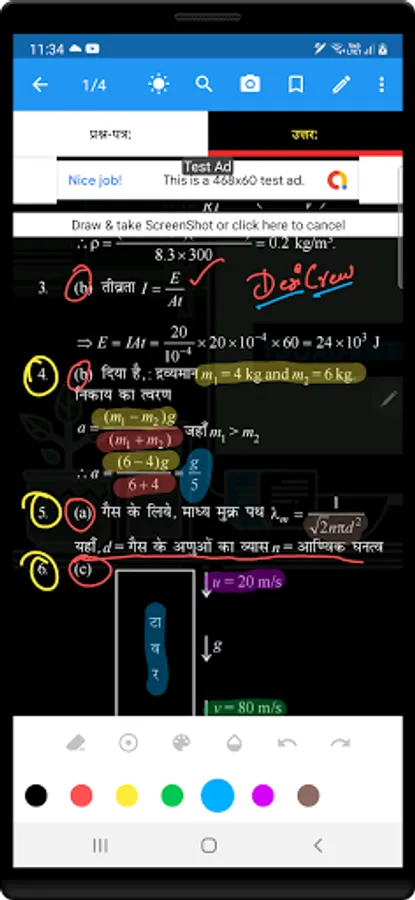 11:34
1/4
प्रश्न-पत्र: उत्तर:
Test Ad
Nice job! This is a 468x60 test ad.
Draw & take ScreenShot or click here to cancel
∴ρ = ──── = 0.2 kg/m³.
8.3×300
3. (b) तीव्रता I = E/At
Desi Crew
⇒ E = IAt = 20/10⁻⁴ × 20×10⁻⁴ × 60 = 24×10³ J
4. (b) दिया है, : द्रव्यमान m₁ = 4 kg and m₂ = 6 kg.
निकाय का त्वरण
a = (m₁ − m₂)g/(m₁ + m₂) जहाँ m₁ > m₂
∴ a = (6−4)g/6+4 = g/5
5. (a) गैस के लिये, माध्य मुक्र पथ λₘ = 1/√2nπd²
यहाँ, d = गैस के अणुओं का व्यास n = आण्विक घनत्व
6. (c)
u = 20 m/s
टावर
g
v = 80 m/s